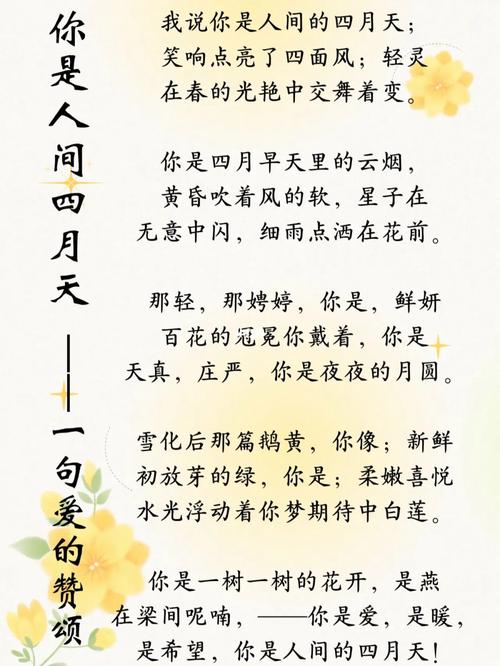 你是人间四月天——一句爱的赞颂
我说你是人间的四月天；
笑响点亮了四面风；轻灵
在春的光艳中交舞着变。
你是四月早天里的云烟，
黄昏吹着风的软，星子在
无意中闪，细雨点洒在花前。
那轻，那娉婷，你是，鲜妍
百花的冠冕你戴着，你是
天真，庄严，你是夜夜的月圆。
雪化后那篇鹅黄，你像；新鲜
初放芽的绿，你是；柔嫩喜悦
水光浮动着你梦期待中白莲。
你是一树一树的花开，是燕
在梁间呢喃，——你是爱，是暖，
是希望，你是人间的四月天！